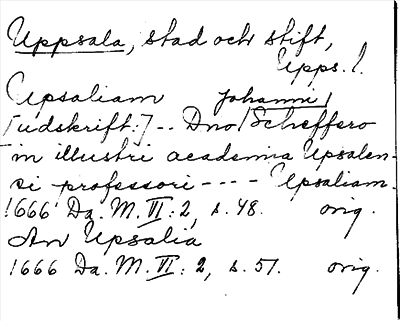 Uppsala, stad och stift,
Upps. l.
Upsaliam Johanni
[udskrift:] -- Dno Scheffero
in illustri academia Upsalen-
si professori ---- Upsaliam.
1666 Da. M. VI: 2, s. 48. orig.
An Upsalia
1666 Da. M. VI: 2, s. 51. orig.